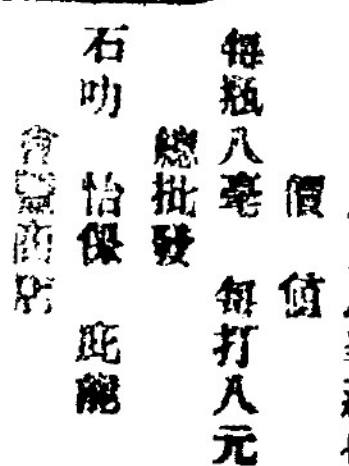 價值
每瓶八毫 每打八元
總批發
石叻 怡保 庇能